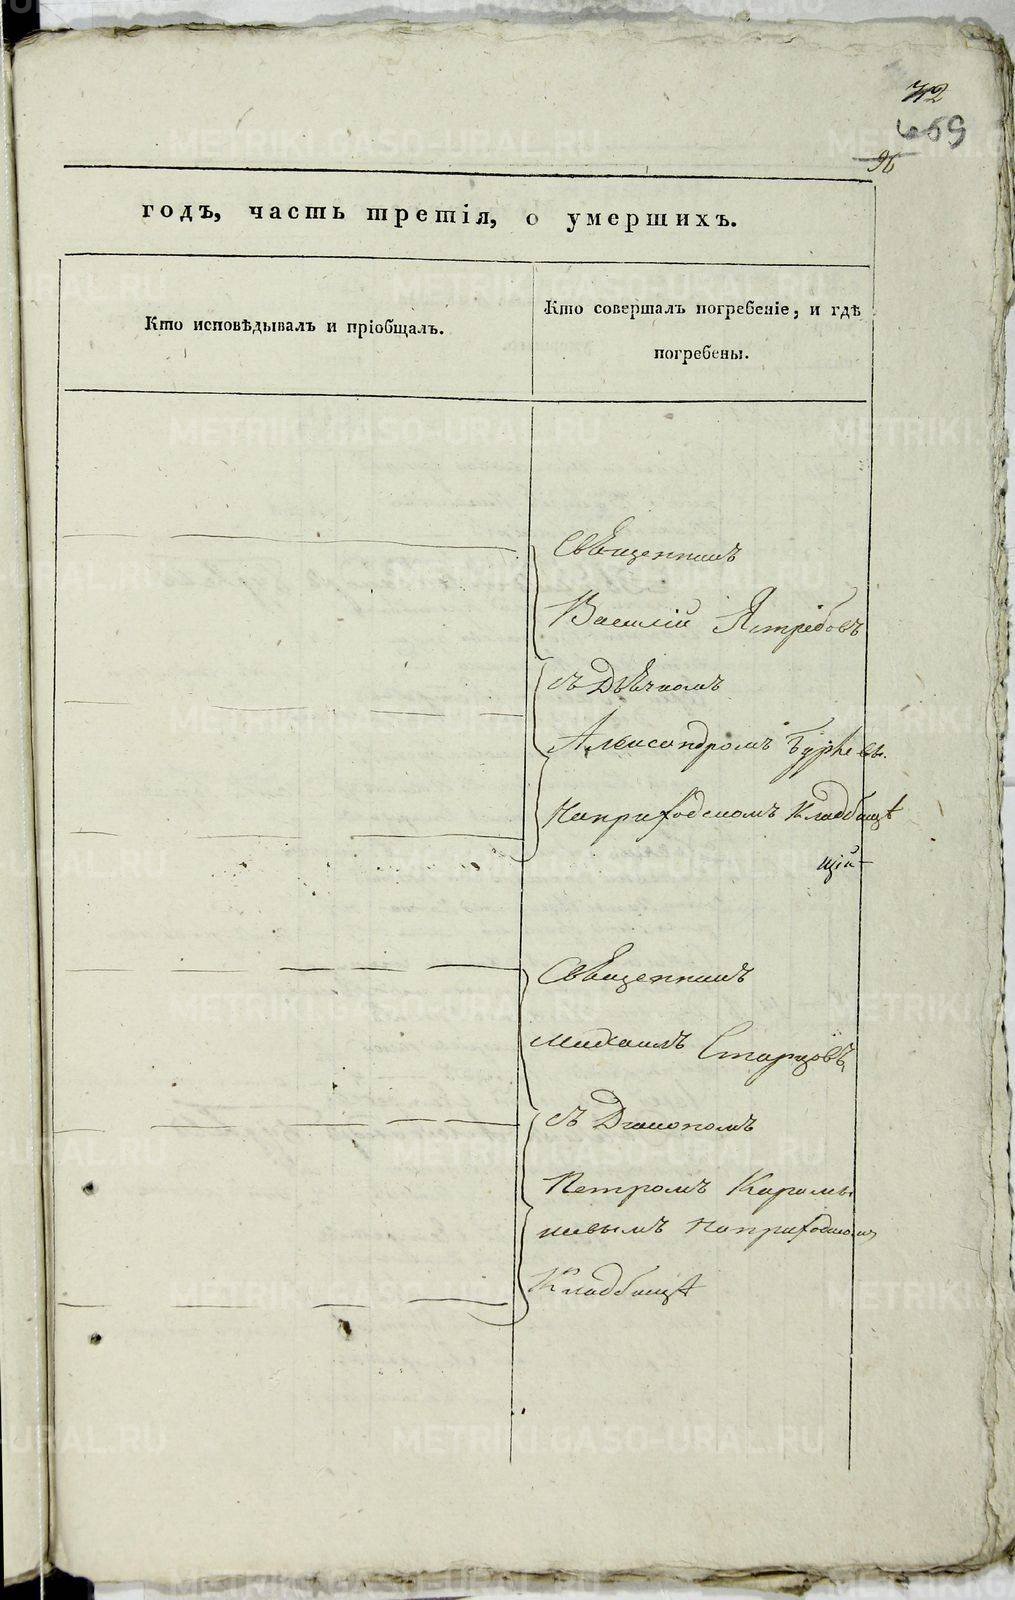 72
659
96
годъ, часть третія, о умершихъ.
Кто исповѣдывалъ и пріобщалъ.
Кто совершалъ погребеніе, и гдѣ
погребены.
Священникъ
Василій Ястребовъ
съ Дьячкомъ
Александромъ
На приходскомъ Кладбищѣ
Священникъ
Михаилъ Старцовъ
съ Діакономъ
Петромъ Карамы
шевымъ На приходскомъ
Кладбищѣ
METRIKI.GASO-URAL.RU